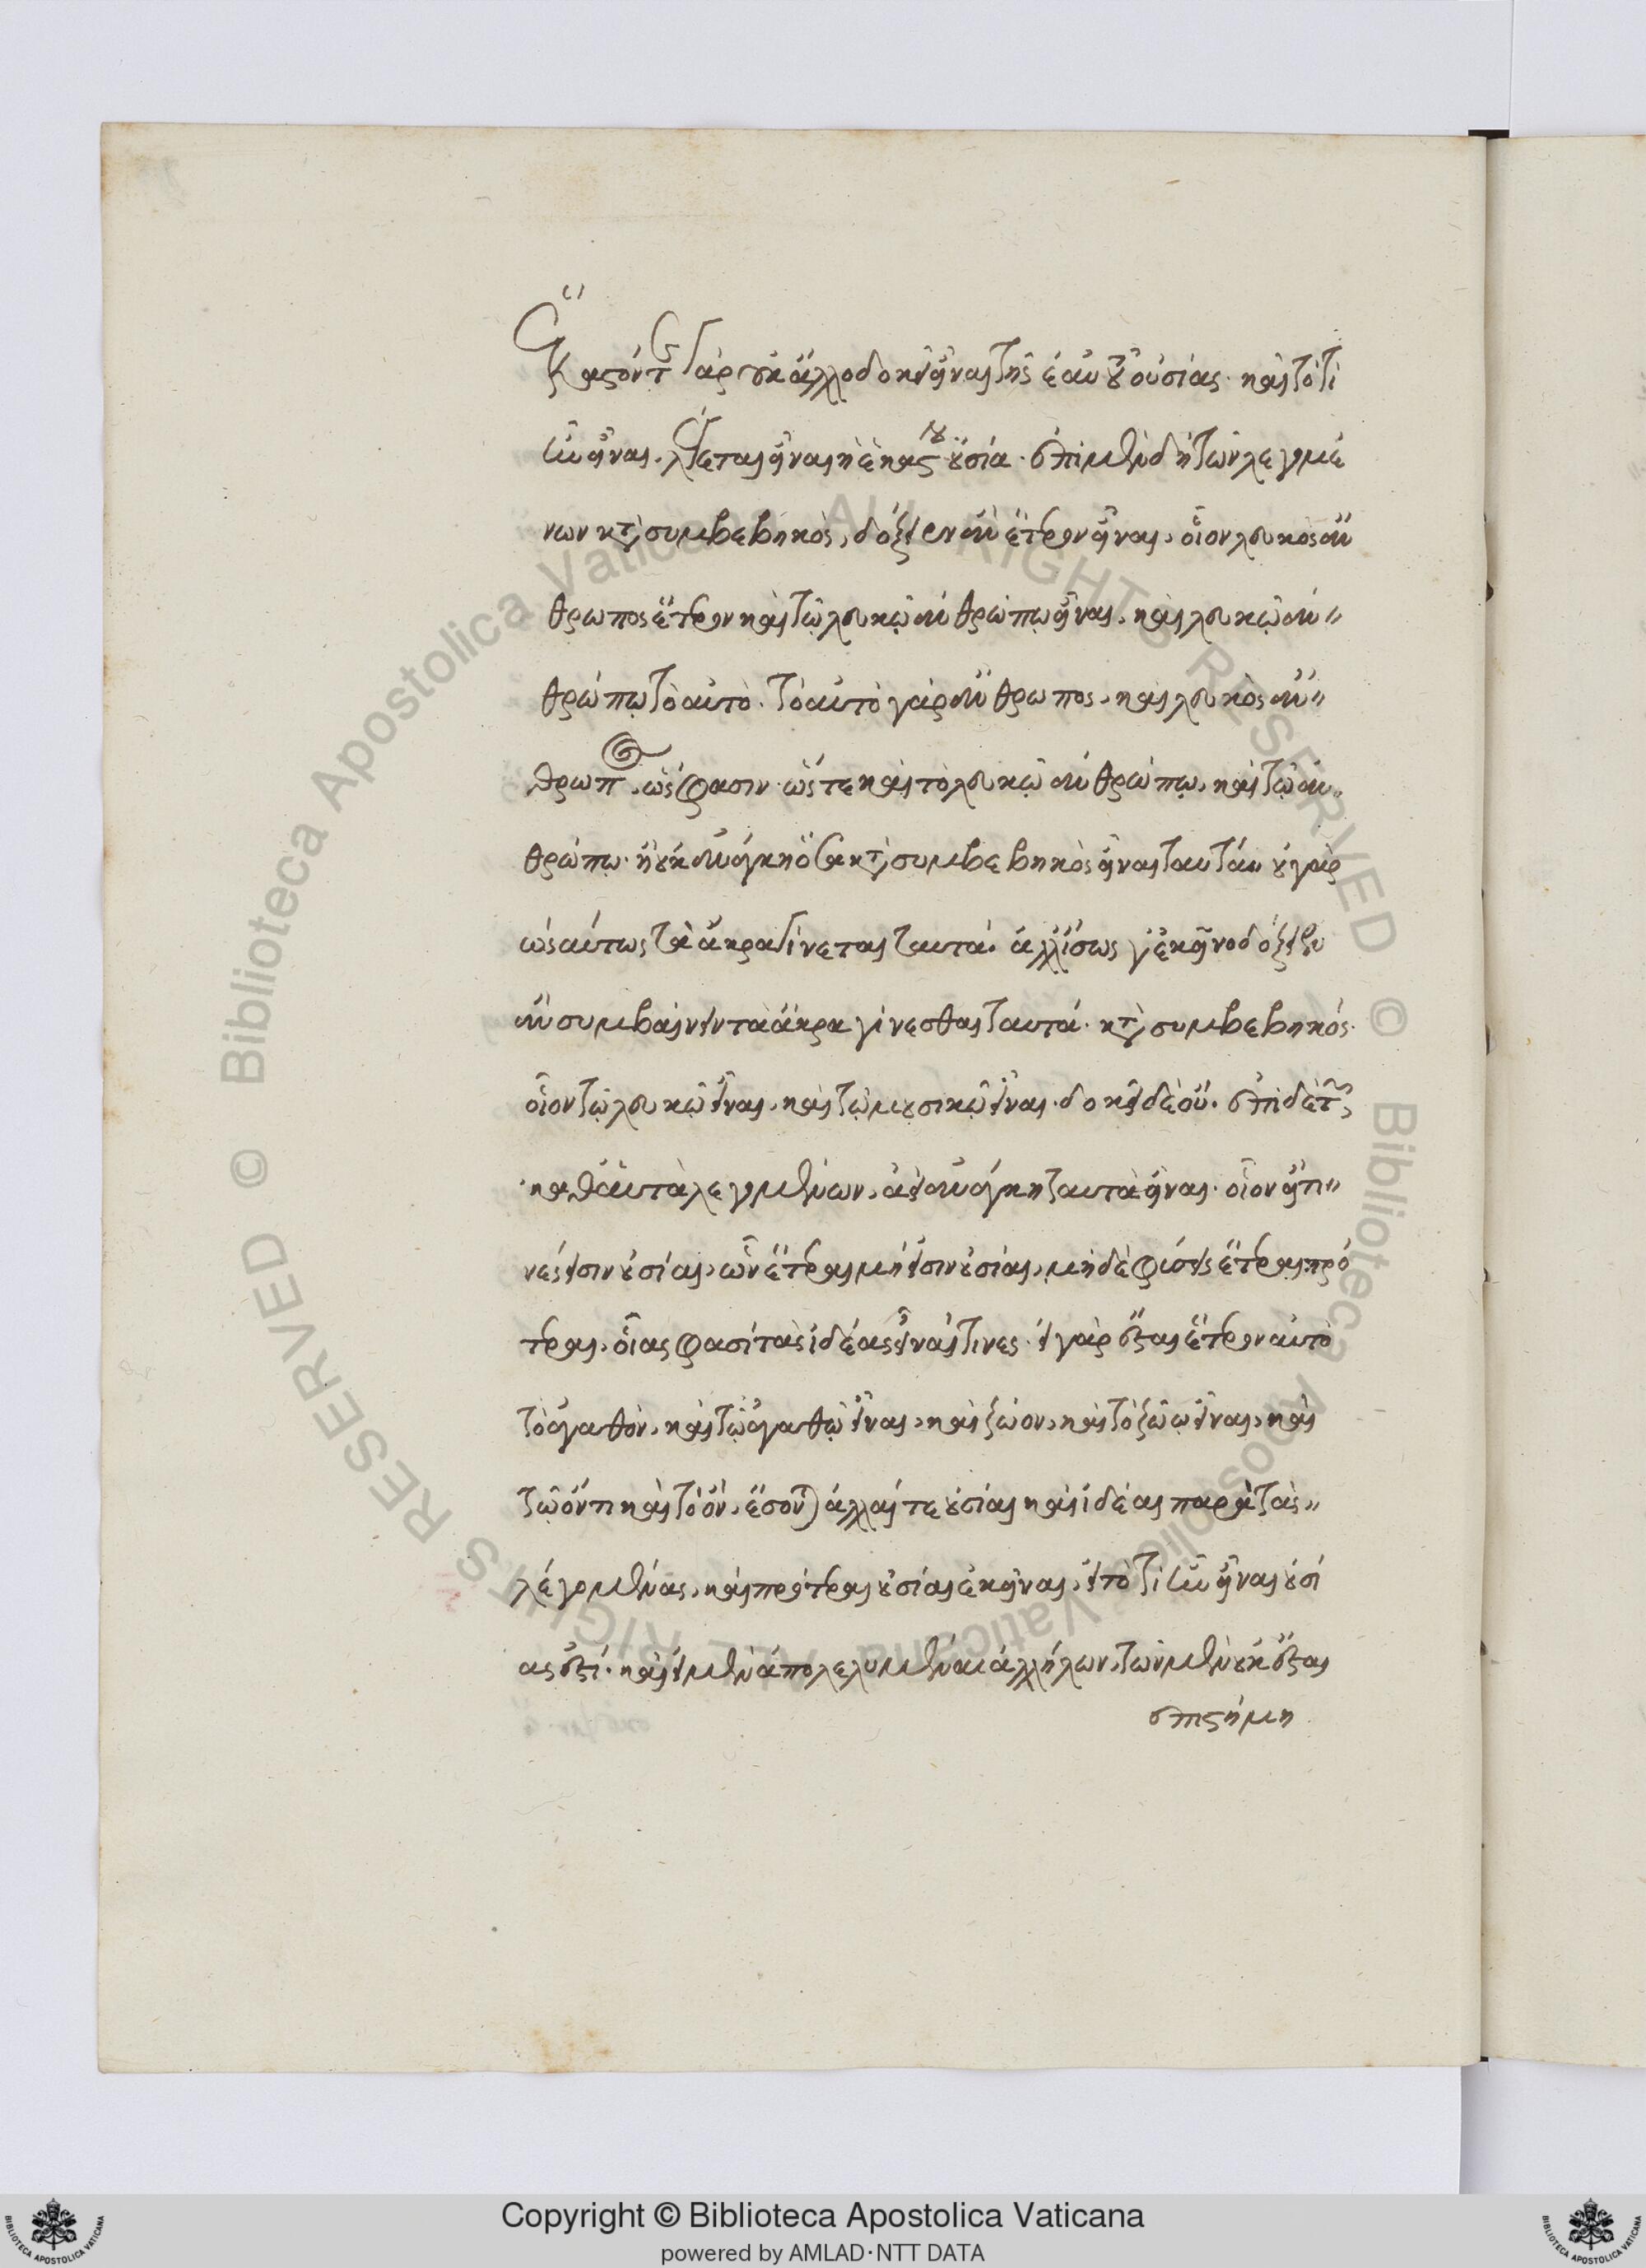 ἕκαστόν τε γὰρ οὐκ ἄλλο δοκεῖ εἶναι τῆς ἑαυτοῦ οὐσίας· καὶ τὸ τί
ἦν εἶναι λέγεται εἶναι ἡ ἑκάστου οὐσία· ἐπὶ μὲν δὴ τῶν λεγομέ
νων κατὰ συμβεβηκὸς, δόξειεν ἂν ἕτερον εἶναι, οἷον λευκὸς ἄν
θρωπος ἕτερον καὶ τῷ λευκῷ ἀνθρώπῳ εἶναι, καὶ λευκῷ ἀν
θρώπῳ τὸ αὐτὸ. τὸ αὐτὸ γὰρ ἄνθρωπος, καὶ λευκὸς ἄν
θρωπος, ὥς φασιν· ὥστε καὶ τὸ λευκῷ ἀνθρώπῳ, καὶ τῷ ἀν
θρώπῳ· ἢ οὐκ ἀνάγκη ὅσα κατὰ συμβεβηκὸς εἶναι ταυτά οὐ γὰρ
ὡσαύτως τὰ ἄκρα γίνεται ταυτά. ἀλλ' ἴσως γ' ἐκεῖνο δόξειεν
ἂν συμβαίνειν τὰ ἄκρα γίνεσθαι ταυτά· κατὰ συμβεβηκός·
οἷον τῷ λευκῷ εἶναι, καὶ τῷ μουσικῷ εἶναι· δοκεῖ δὲ οὔ. ἐπὶ δὲ τῶν
καθ' αὑτὰ λεγομένων, ἀεὶ ἀνάγκη ταυτὰ εἶναι· οἷον εἴ τι
νές εἰσιν οὐσίαι, ὧν ἕτεραι μή εἰσιν οὐσίαι, μηδὲ φύσεις ἕτεραι πρό
τεραι, οἵας φασί τὰς ἰδέας εἶναί τινες· εἰ γὰρ ἔσται ἕτερον αὐτὸ
τὸ ἀγαθόν, καὶ τῷ ἀγαθῷ εἶναι, καὶ ζῷον, καὶ τὸ ζῴῳ εἶναι, καὶ
τῷ ὄντι καὶ τὸ ὄν, ἔσονται ἄλλαι τε οὐσίαι καὶ ἰδέαι παρὰ τὰς
λεγομένας, καὶ πρότεραι οὐσίαι ἐκεῖναι, εἰ τὸ τί ἦν εἶναι οὐσί
ας ἐστί. καὶ εἰ μὲν ἀπολελυμέναι ἀλλήλων, τῶν μὲν οὐκ ἔσται
ἐπιστήμη
Copyright © Biblioteca Apostolica Vaticana
powered by AMLAD·NTT DATA